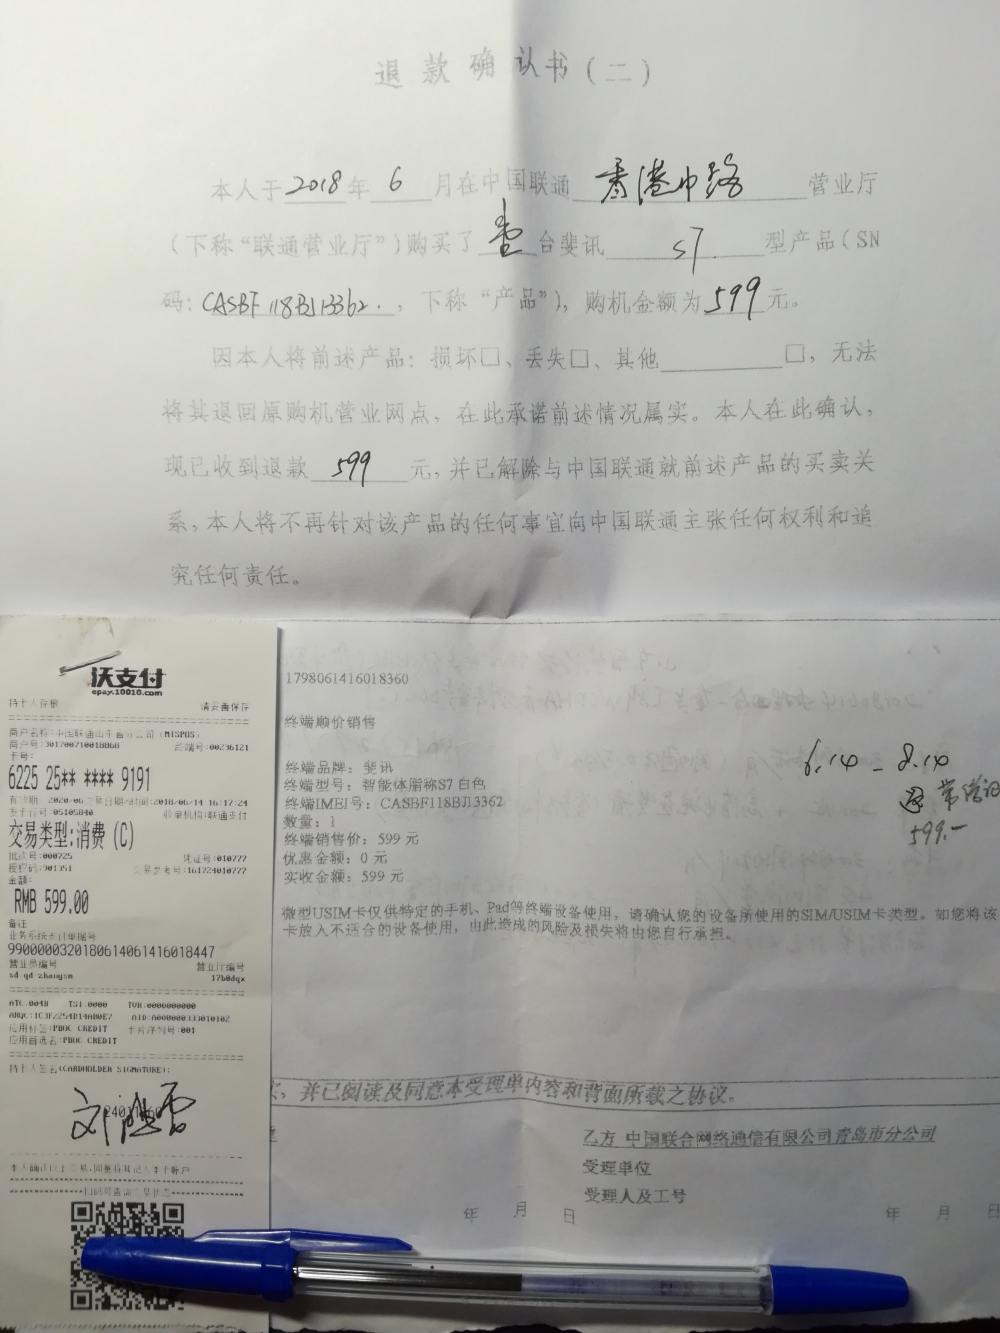 退款确认书(二)
本人于2018年 6 月在中国联通 香港中路 营业厅
(下称“联通营业厅”)购买了 壹 台斐讯 S7 型产品(SN
码: CASBF118BJ13362.,下称“产品”),购机金额为599元。
因本人将前述产品:损坏□、丢失□、其他 □,无法
将其退回原购机营业网点,在此承诺前述情况属实。本人在此确认,
现已收到退款 599 元,并已解除与中国联通就前述产品的买卖关
系,本人将不再针对该产品的任何事宜向中国联通主张任何权利和追
究任何责任。
沃支付
epay.10010.com
持卡人存根 请妥善保存
商户名称:中国联通山东省分公司(MISPOS)
商户号:301700710018868 终端号:00236121
卡号:
6225 25** **** 9191
有效期 2020/06 交易日期/时间:2018/06/14 16:17:24
发卡行号:05105840 收单机构:联通支付
交易类型:消费(C)
批次号:000725 凭证号:010777
授权码:901351 交易参考号:161724010777
金额:
RMB 599.00
备注
业务系统支付单据号
99000003201806140614160​18447
营业员编号 营业厅编号
sd-qd-zhangsm 17b0dqx
ATC:004B TSI:0000 TVR:0000000000
AID:A000000333010102
应用标签:PBOC CREDIT 卡片序列号:001
应用首选名:PBOC CREDIT
持卡人签名(CARDHOLDER SIGNATURE):
本人确认以上交易,同意将其记入本卡帐户
1798061416018360
终端顺价销售
终端品牌:斐讯
终端型号:智能体脂称S7 白色
终端IMEI号:CASBF118BJ13362
数量:1
终端销售价:599 元
优惠金额:0 元
实收金额:599 元
6.14 - 8.14
599.-
微型USIM卡仅供特定的手机、Pad等终端设备使用,请确认您的设备所使用的SIM/USIM卡类型。如您将该
卡放入不适合的设备使用,由此造成的风险及损失将由您自行承担。
,并已阅读及同意本受理单内容和背面所载之协议。
乙方 中国联合网络通信有限公司青岛市分公司
受理单位
受理人及工号
年 月 日 年 月 日